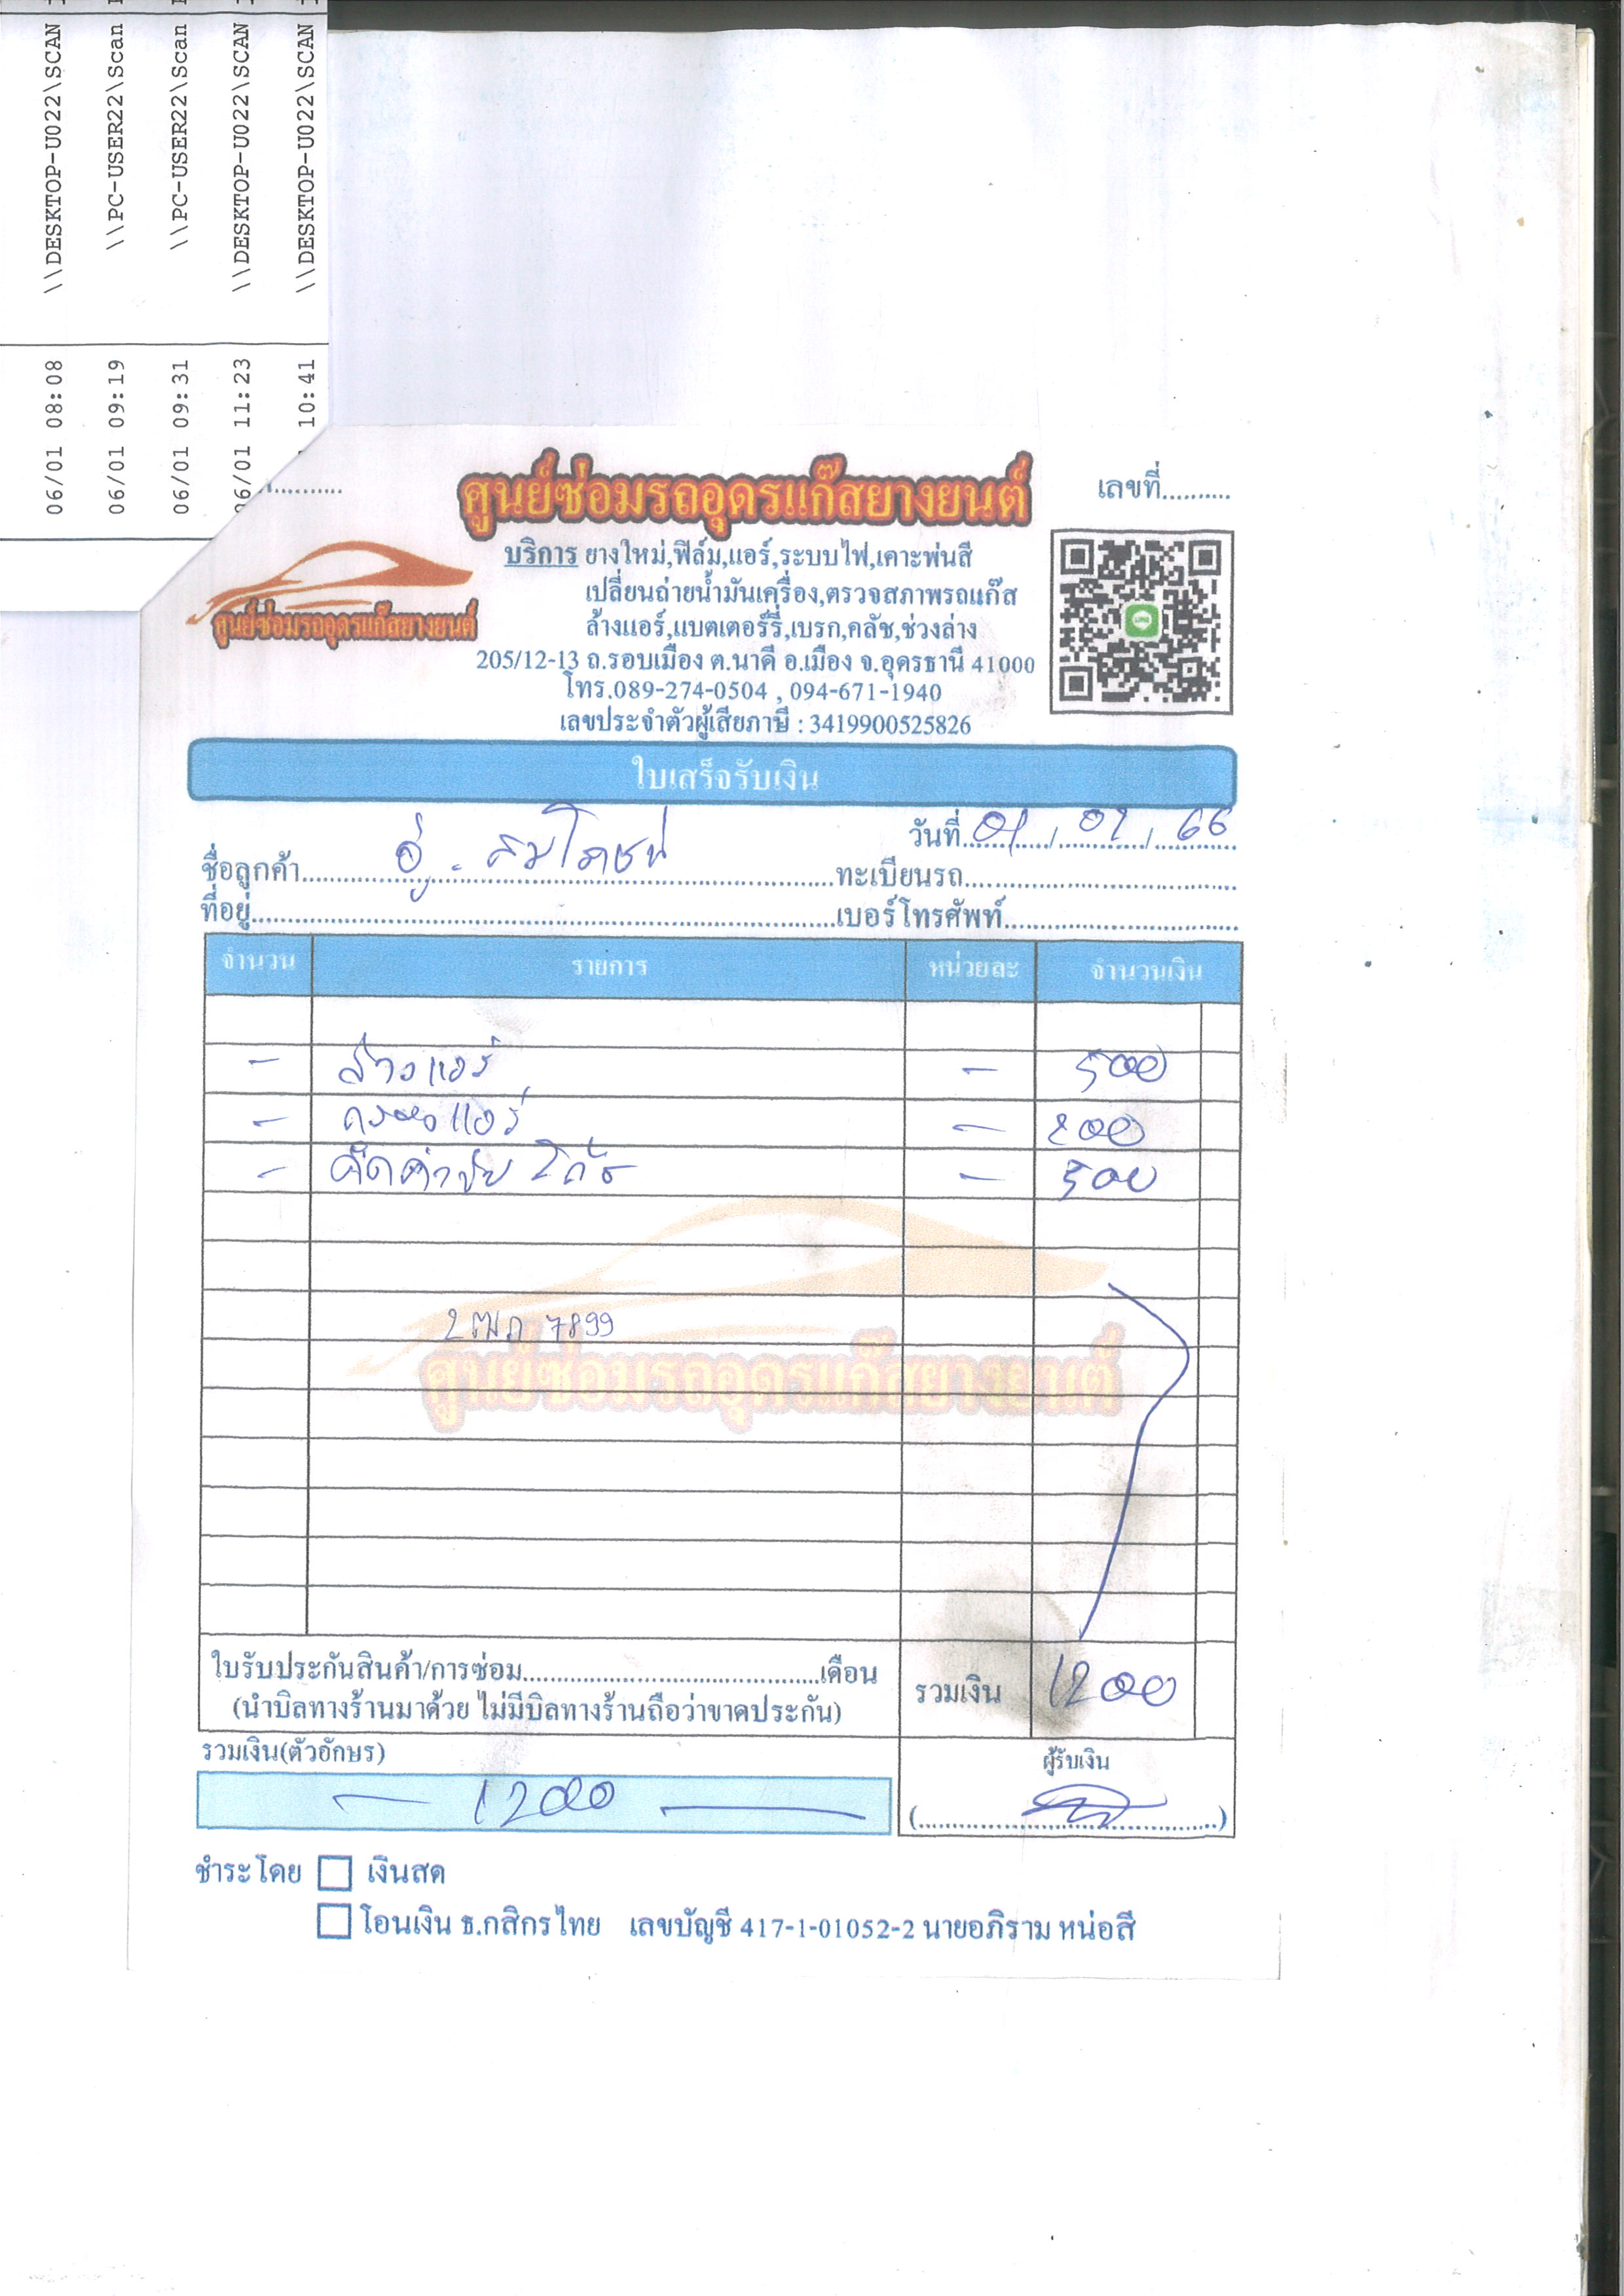 \\DESKTOP-U022\SCAN
\\PC-USER22\Scan
\\PC-USER22\Scan
\\DESKTOP-U022\SCAN
\\DESKTOP-U022\SCAN
06/01 08:08
06/01 09:19
06/01 09:31
06/01 11:23
10:41
ศูนย์ซ่อมรถอุดรแก๊สยางยนต์
เลขที่..........
บริการ ยางใหม่,ฟิล์ม,แอร์,ระบบไฟ,เคาะพ่นสี
เปลี่ยนถ่ายน้ำมันเครื่อง,ตรวจสภาพรถแก๊ส
ศูนย์ซ่อมรถอุดรแก๊สยางยนต์
ล้างแอร์,แบตเตอร์รี่,เบรก,คลัช,ช่วงล่าง
205/12-13 ถ.รอบเมือง ต.นาดี อ.เมือง จ.อุดรธานี 41000
โทร.089-274-0504 , 094-671-1940
เลขประจำตัวผู้เสียภาษี : 3419900525826
ใบเสร็จรับเงิน
วันที่ 01 / 01 / 66
ชื่อลูกค้า อู่ . ทะเบียนรถ
ที่อยู่ เบอร์โทรศัพท์
จำนวน รายการ หน่วยละ จำนวนเงิน
- ล้างแอร์ - 500
- แอร์ - 200
- - 500
2ฒภ 7899
ศูนย์ซ่อมรถอุดรแก๊สยางยนต์
ใบรับประกันสินค้า/การซ่อม เดือน
(นำบิลทางร้านมาด้วย ไม่มีบิลทางร้านถือว่าขาดประกัน)
รวมเงิน 1200
รวมเงิน(ตัวอักษร)
ผู้รับเงิน
— 1200 —
ชำระโดย เงินสด
โอนเงิน ธ.กสิกรไทย เลขบัญชี 417-1-01052-2 นายอภิราม หน่อสี